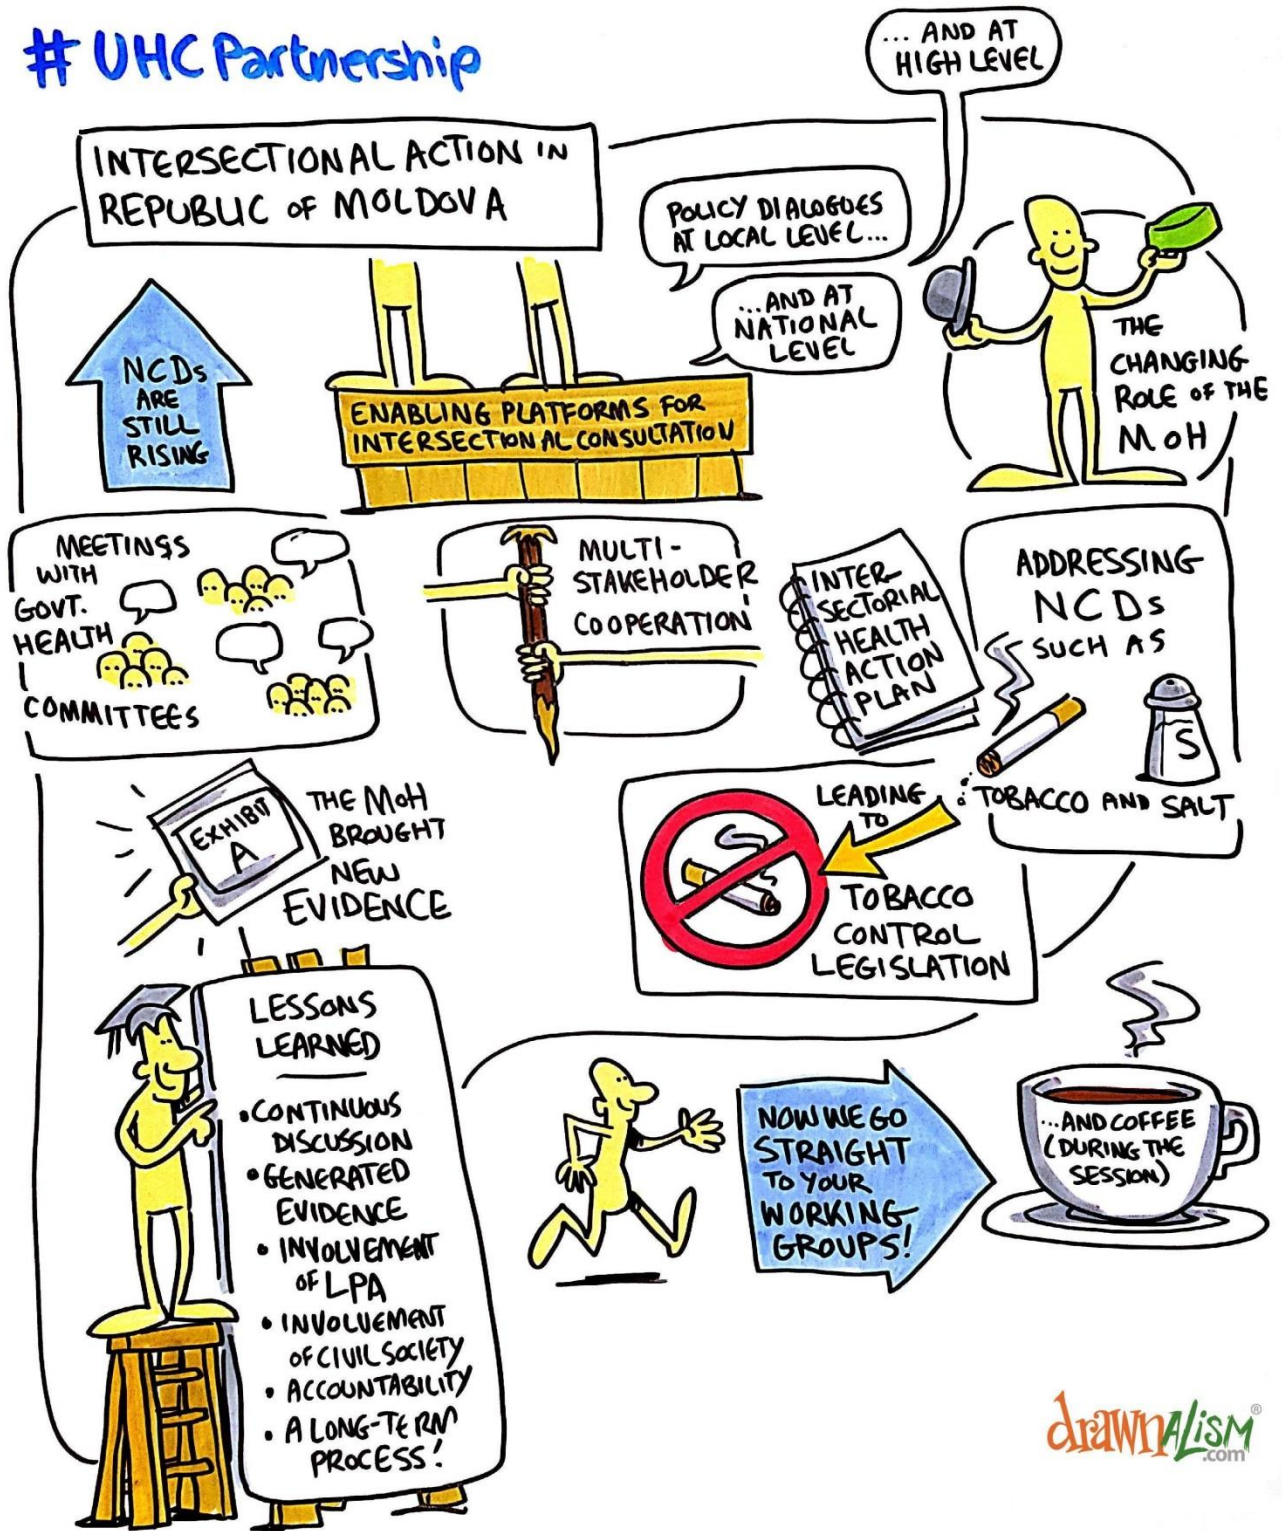 # UHC Partnership
INTERSECTIONAL ACTION IN
REPUBLIC OF MOLDOVA
POLICY DIALOGUES
AT LOCAL LEVEL...
...AND AT
NATIONAL
LEVEL
... AND AT
HIGH LEVEL
NCDs
ARE
STILL
RISING
ENABLING PLATFORMS FOR
INTERSECTIONAL CONSULTATION
THE
CHANGING
ROLE OF THE
MOH
MEETINGS
WITH
GOVT.
HEALTH
COMMITTEES
MULTI-
STAKEHOLDER
COOPERATION
INTER-
SECTORIAL
HEALTH
ACTION
PLAN
ADDRESSING
NCDs
SUCH AS
S
TOBACCO AND SALT
LEADING
TO
TOBACCO
CONTROL
LEGISLATION
EXHIBIT
A
THE MOH
BROUGHT
NEW
EVIDENCE
LESSONS
LEARNED
• CONTINUOUS
DISCUSSION
• GENERATED
EVIDENCE
• INVOLVEMENT
OF LPA
• INVOLVEMENT
OF CIVIL SOCIETY
• ACCOUNTABILITY
• A LONG-TERM
PROCESS!
NOW WE GO
STRAIGHT
TO YOUR
WORKING
GROUPS!
...AND COFFEE
(DURING THE
SESSION)
drawnALiSM®
.com